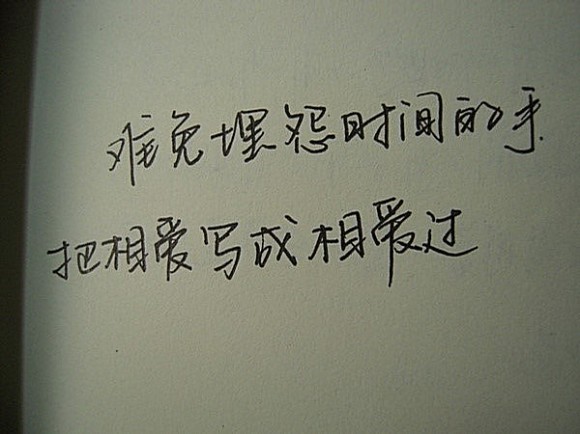 难免埋怨时间的手
把相爱写成相爱过